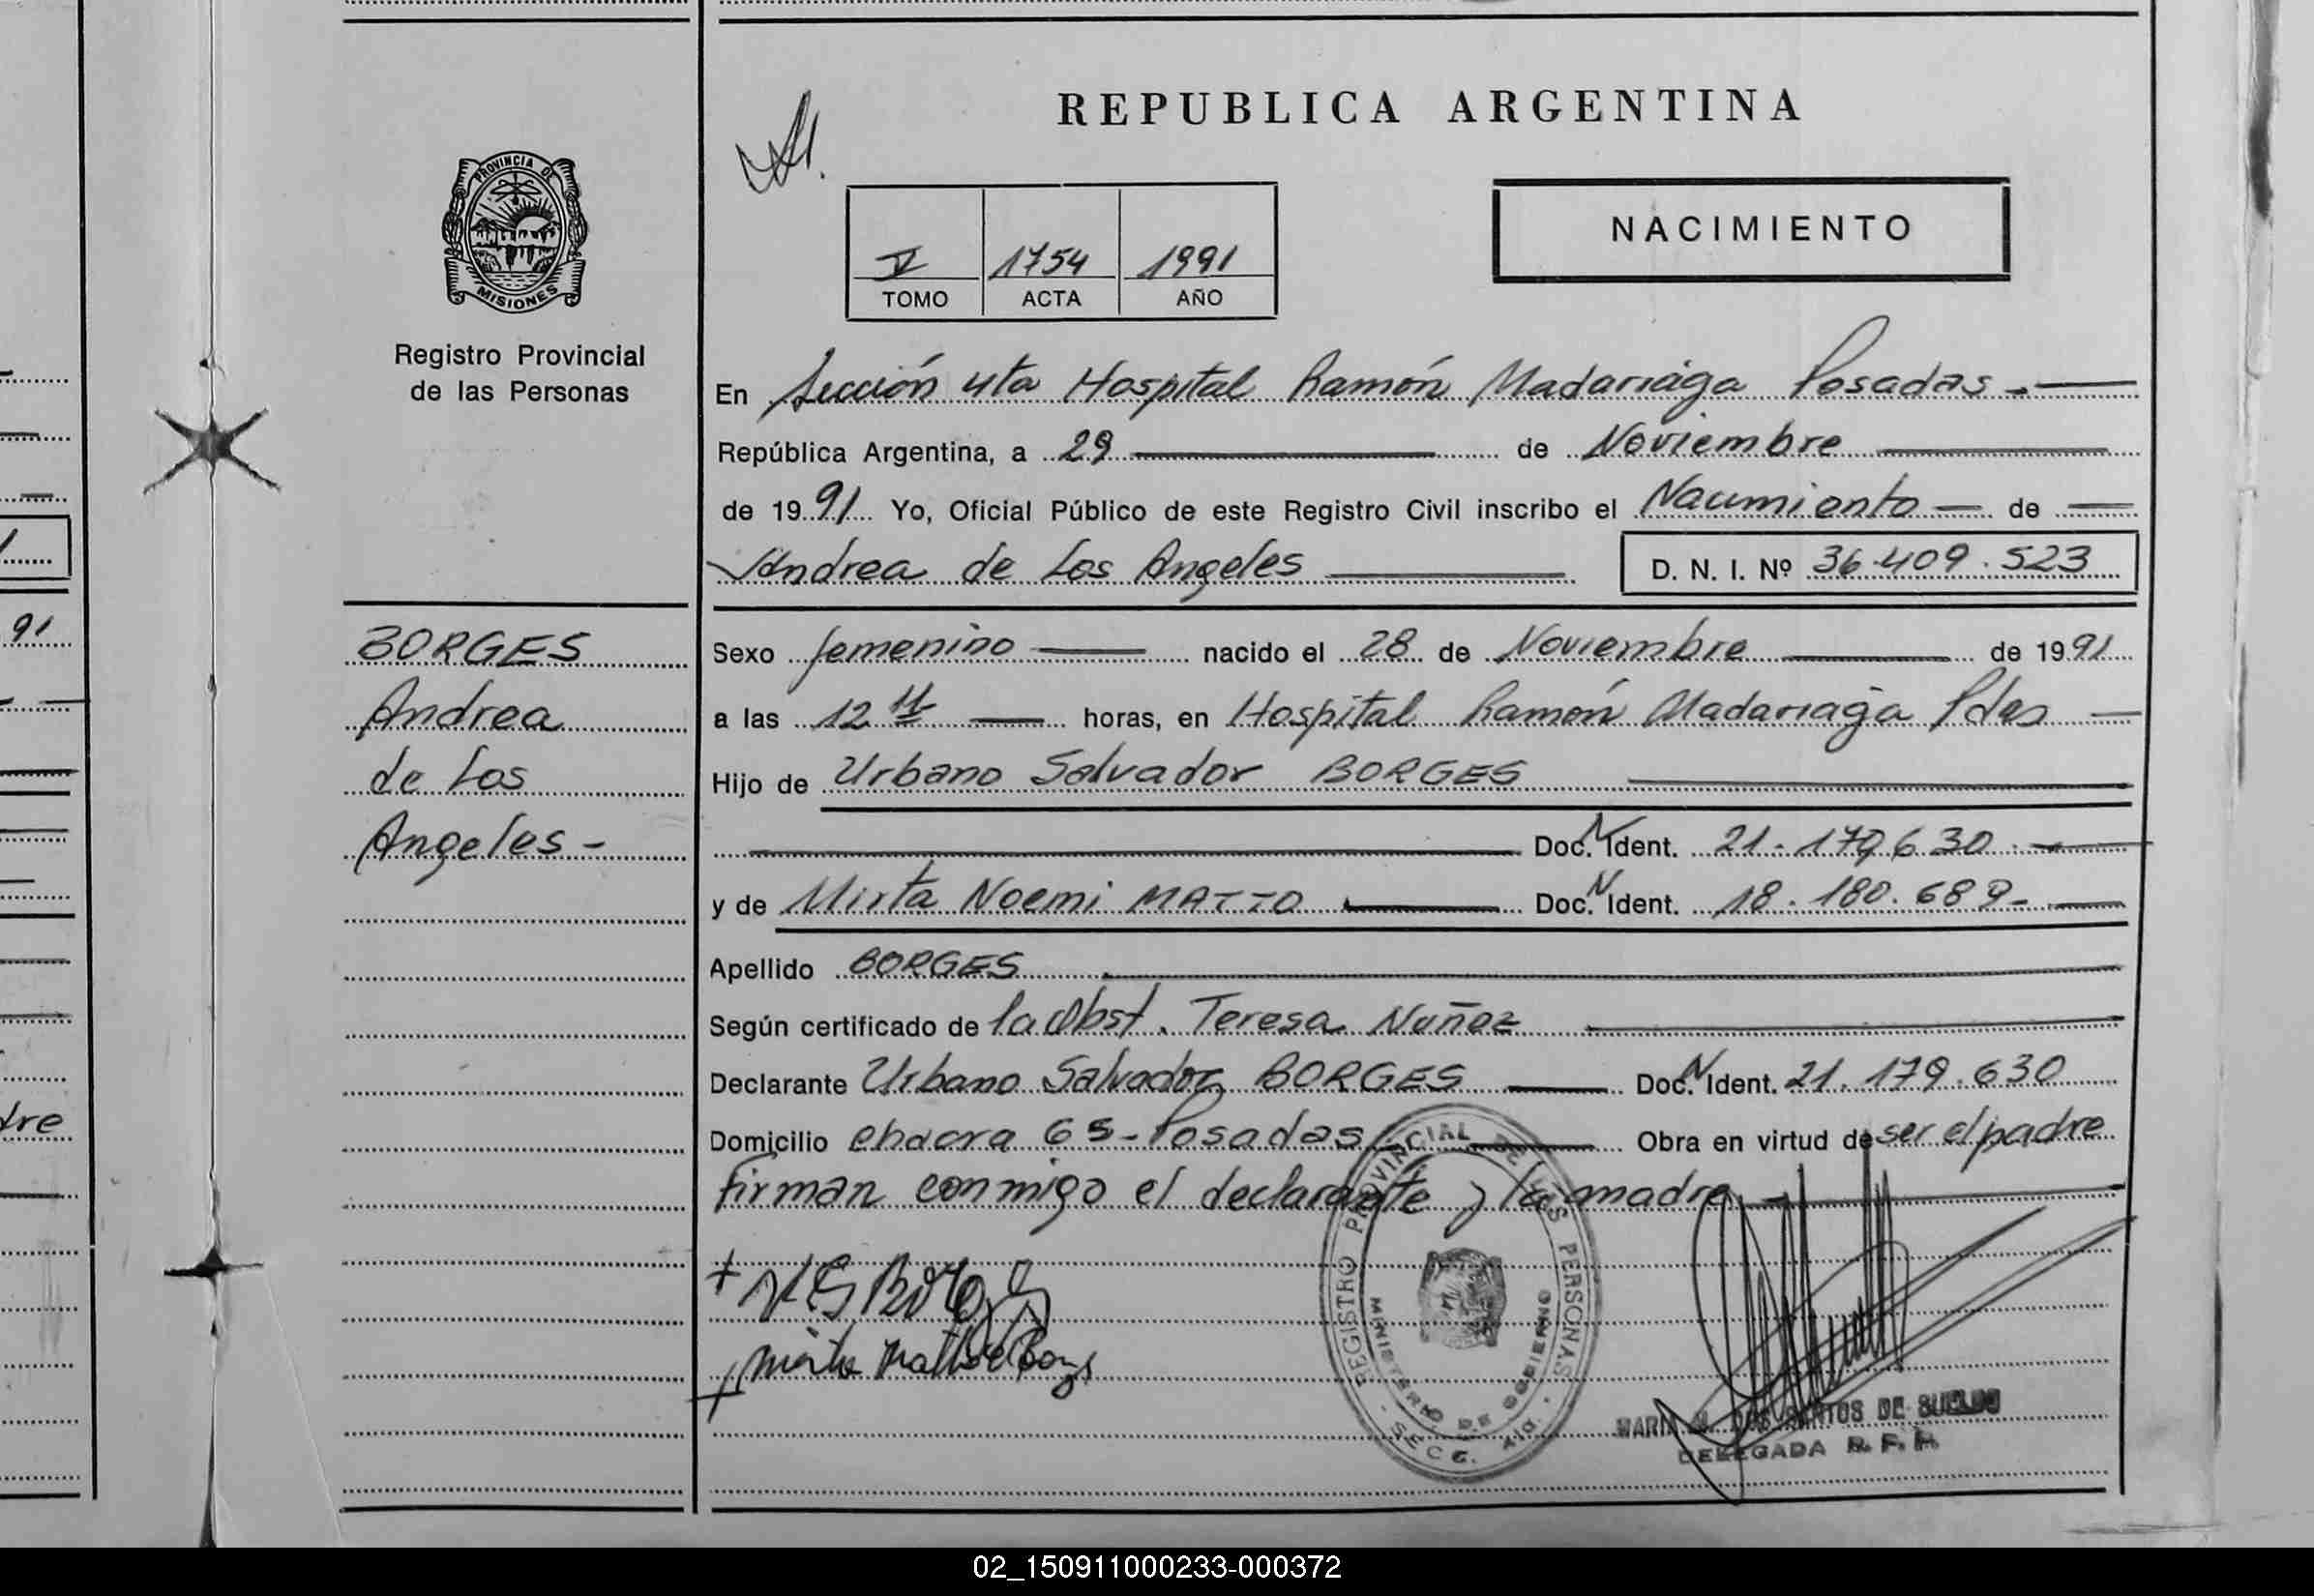 REPUBLICA ARGENTINA
PROVINCIA DE
MISIONES
Registro Provincial
de las Personas
V 1754 1991
TOMO ACTA AÑO
NACIMIENTO
En Sección 4ta Hospital Ramón Madariaga Posadas.-
República Argentina, a 29 de Noviembre
de 1991 Yo, Oficial Público de este Registro Civil inscribo el Nacimiento de
Andrea de Los Angeles D. N. I. Nº 36.409.523
BORGES
Andrea
de Los
Angeles -
Sexo femenino nacido el 28 de Noviembre de 1991
a las 12 horas, en Hospital Ramón Madariaga Pdas
Hijo de Urbano Salvador BORGES
Doc. N Ident. 21.179.630
y de Mirta Noemi MATTO Doc. N Ident. 18.180.689-
Apellido BORGES
Según certificado de la Obst. Teresa Nuñez
Declarante Urbano Salvador BORGES Doc. N Ident. 21.179.630
Domicilio chacra 65 - Posadas Obra en virtud de ser el padre
Firman conmigo el declarante y la madre
REGISTRO PROVINCIAL DE LAS PERSONAS
MINISTERIO DE GOBIERNO
SECC. 4ta.
MARIA DOS SANTOS DE
DELEGADA
91
dre
02_150911000233-000372